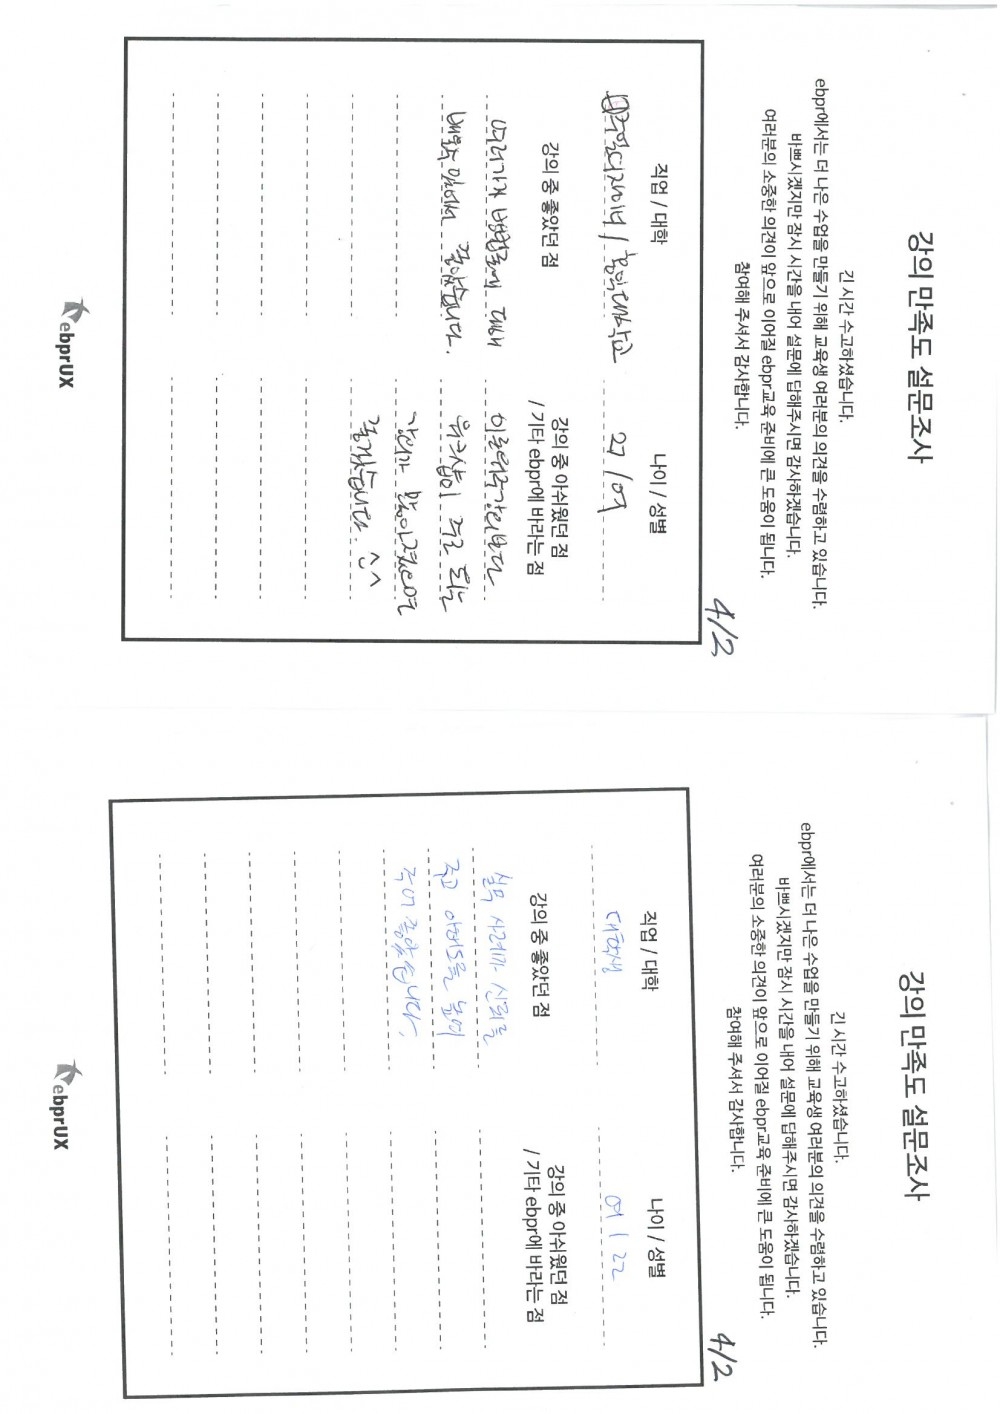 강의 만족도 설문조사
긴 시간 수고하셨습니다.
ebpr에서는 더 나은 수업을 만들기 위해 교육생 여러분의 의견을 수렴하고 있습니다.
바쁘시겠지만 잠시 시간을 내어 설문에 답해주시면 감사하겠습니다.
여러분의 소중한 의견이 앞으로 이어질 ebpr교육 준비에 큰 도움이 됩니다.
참여해 주셔서 감사합니다.
4/2
직업 / 대학
디자이너 / 홍익대학교
나이 / 성별
27 / 여
강의 중 좋았던 점
여러가지 방법론에 대해
배울수 있어서 좋았습니다.
강의 중 아쉬웠던 점
/ 기타 ebpr에 바라는 점
이론위주강의보다
워크샵이 주로 되는
강의가 많아졌으면
좋겠습니다 ^^
ebprUX
강의 만족도 설문조사
긴 시간 수고하셨습니다.
ebpr에서는 더 나은 수업을 만들기 위해 교육생 여러분의 의견을 수렴하고 있습니다.
바쁘시겠지만 잠시 시간을 내어 설문에 답해주시면 감사하겠습니다.
여러분의 소중한 의견이 앞으로 이어질 ebpr교육 준비에 큰 도움이 됩니다.
참여해 주셔서 감사합니다.
4/2
직업 / 대학
대학생
나이 / 성별
여 / 22
강의 중 좋았던 점
실무 사례가 신뢰를
주고 이해도를 높여
주어 좋았습니다.
강의 중 아쉬웠던 점
/ 기타 ebpr에 바라는 점
ebprUX